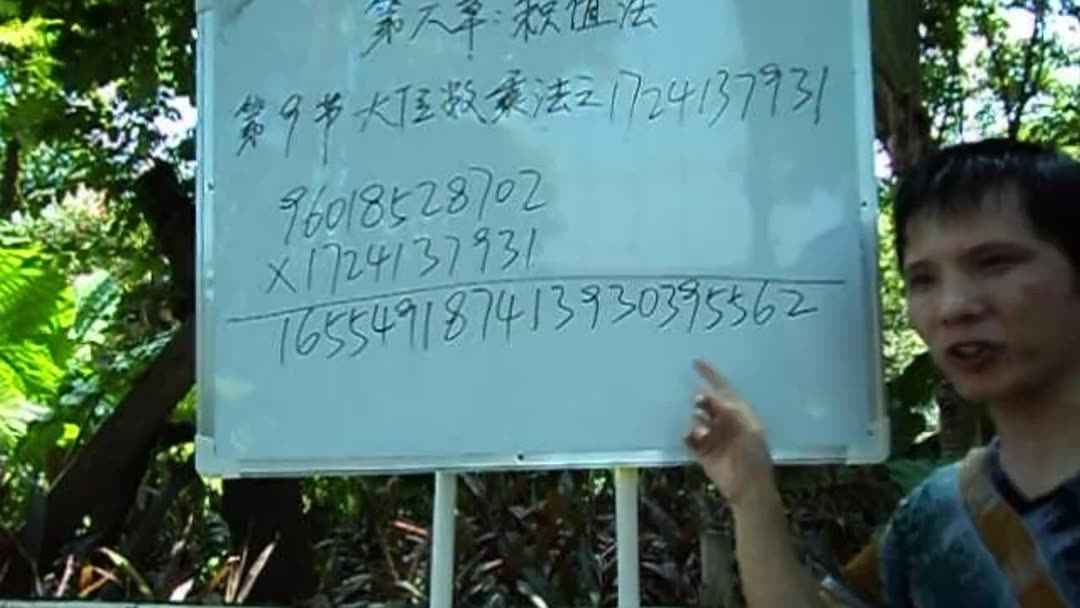 第六章：积值法
第9节 大位数乘法之1724137931
96018528702
×1724137931
165549187413930395562